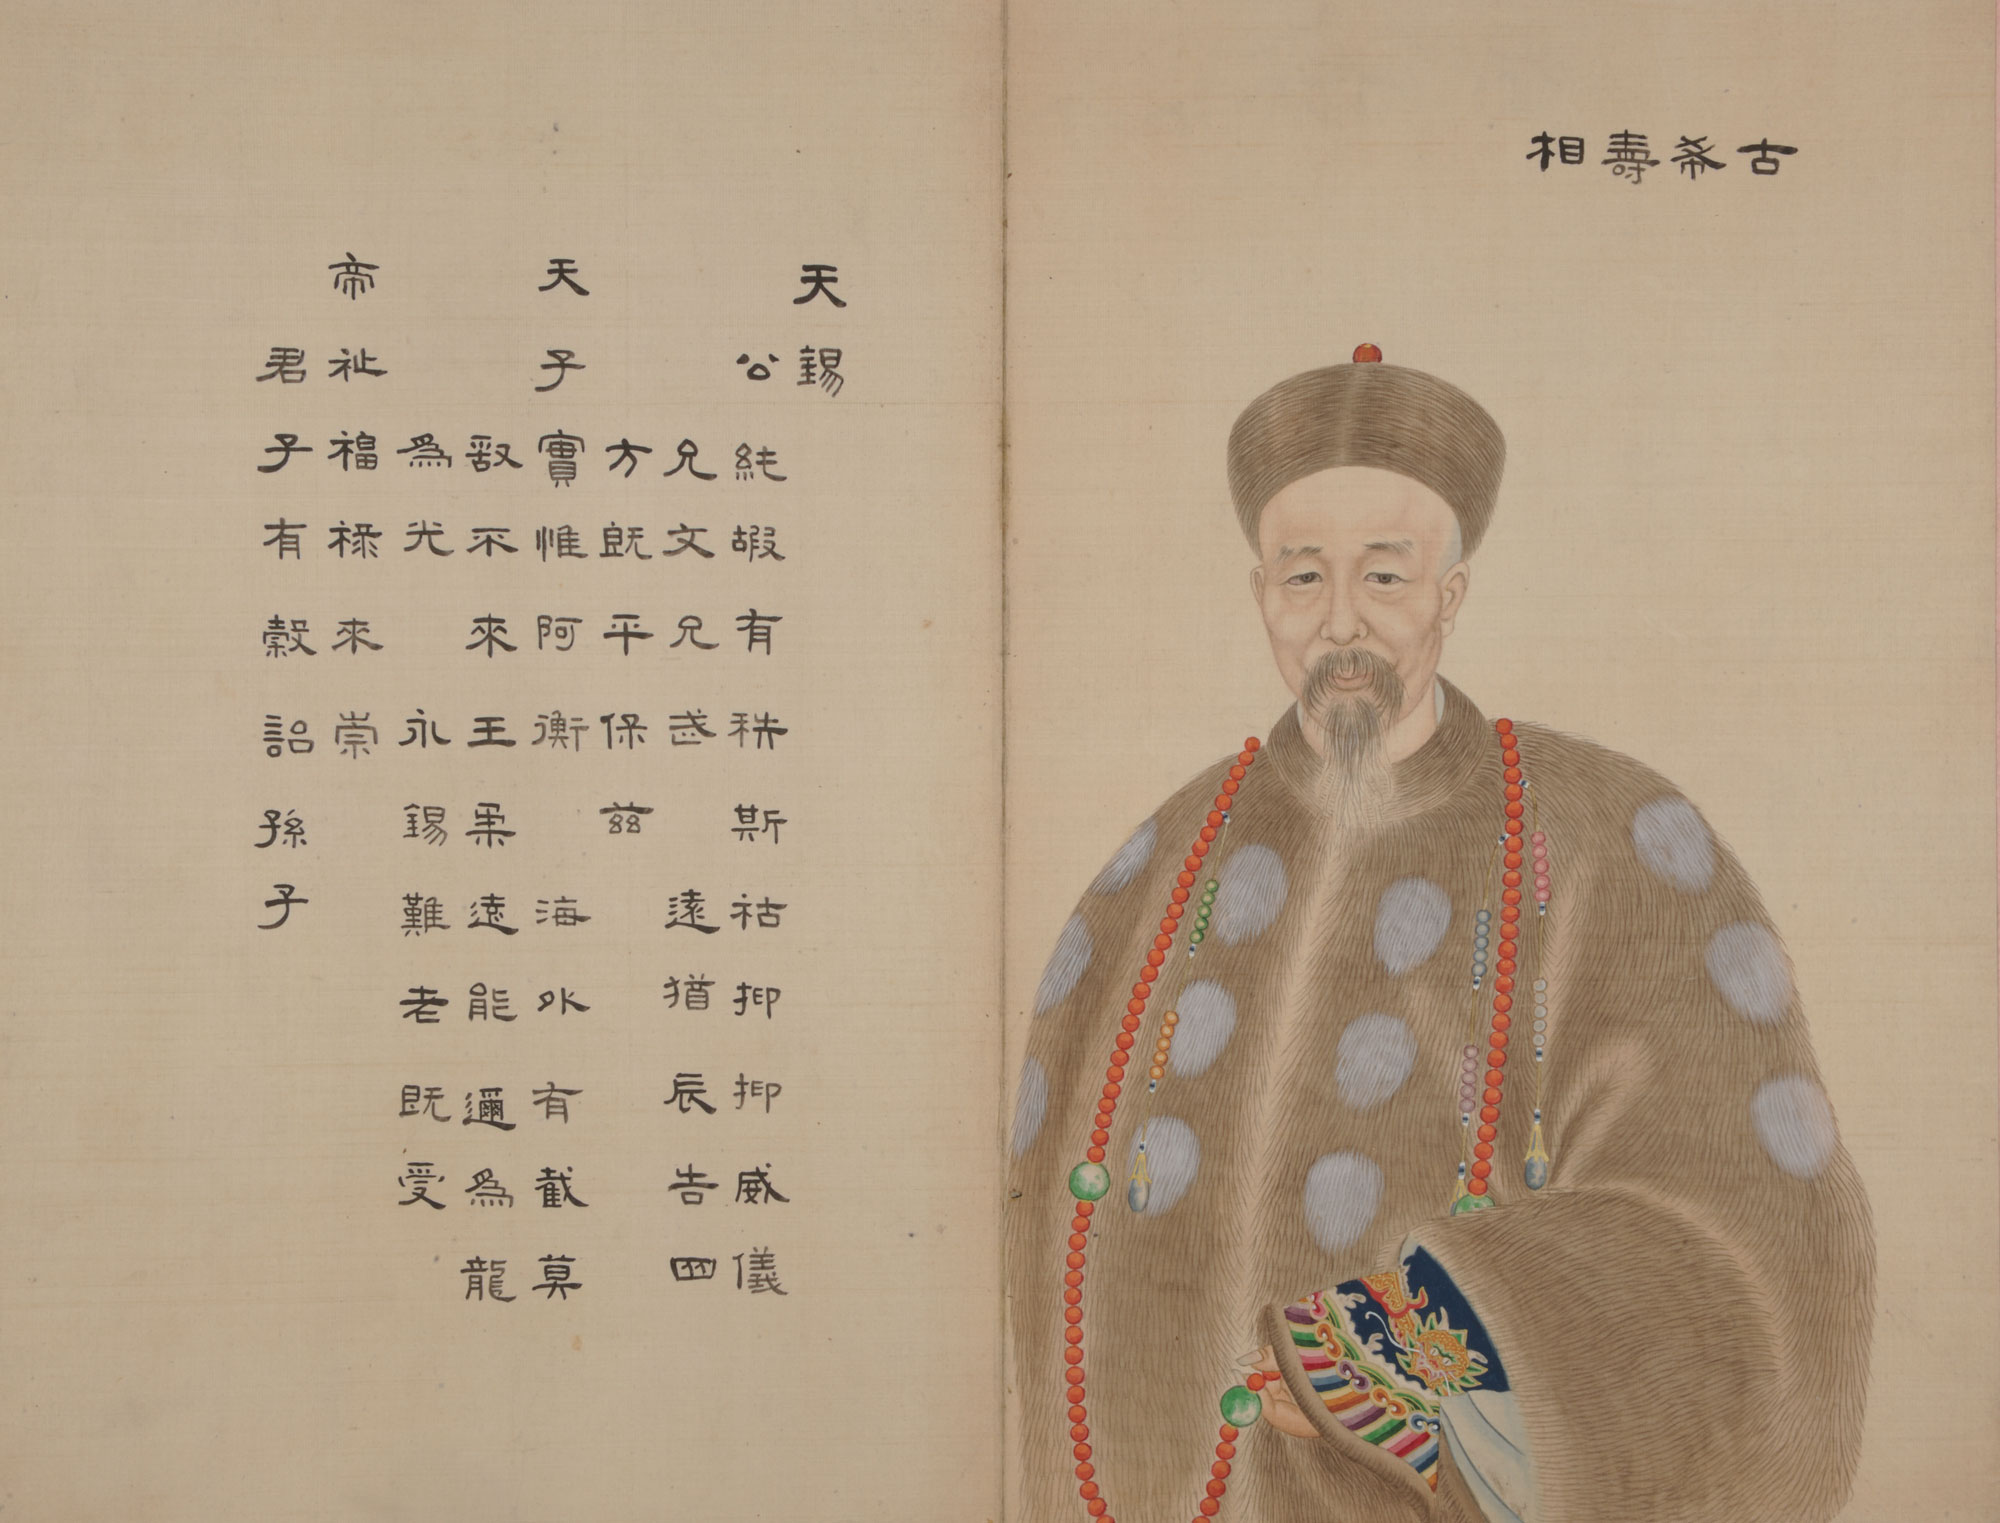 古希壽相
天錫
公純嘏有秩斯祜抑抑威儀
允文允武遠猶辰告四
方既平保茲
天子實惟阿衡海外有截莫
敢不來王柔遠能邇為龍
為光永錫難老既受
帝祉福祿來崇
君子有穀詒孫子